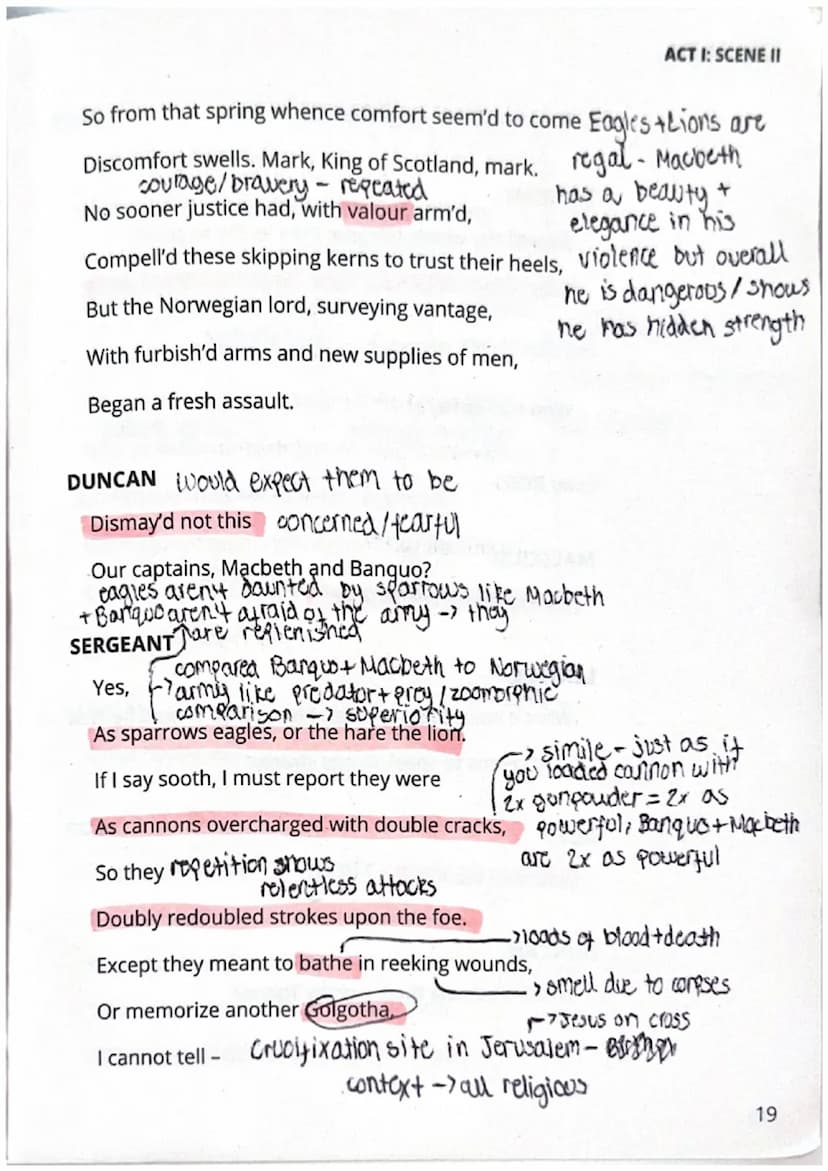 ACT I: SCENE II
So from that spring whence comfort seem'd to come
Eagles + Lions are
Discomfort swells. Mark, King of Scotland, mark.
regal - Macbeth
courage/bravery - repeated
has a beauty +
No sooner justice had, with valour arm'd,
elegance in his
Compell'd these skipping kerns to trust their heels,
violence but overall
he is dangerous/shows
But the Norwegian lord, surveying vantage,
he has hidden strength
With furbish'd arms and new supplies of men,
Began a fresh assault.
DUNCAN
would expect them to be
Dismay'd not this
concerned/fearful
Our captains, Macbeth and Banquo?
eagles aren't daunted by sparrows like Macbeth
+ Banquo aren't afraid of the army -> they
are replenished
SERGEANT
compared Banquo + Macbeth to Norwegian
Yes,
-> army like predator + prey / zoomorphic
comparison -> superiority
As sparrows eagles, or the hare the lion.
-> simile - just as if
If I say sooth, I must report they were
you loaded cannon with
2x gunpowder = 2x as
As cannons overcharged with double cracks,
powerful, Banquo + Macbeth
are 2x as powerful
So they
repetition shows
relentless attacks
Doubly redoubled strokes upon the foe.
-> loads of blood + death
Except they meant to bathe in reeking wounds,
-> smell due to corpses
Or memorize another Golgotha,
-> Jesus on cross
I cannot tell –
Crucifixation site in Jerusalem -
context -> all religious
19